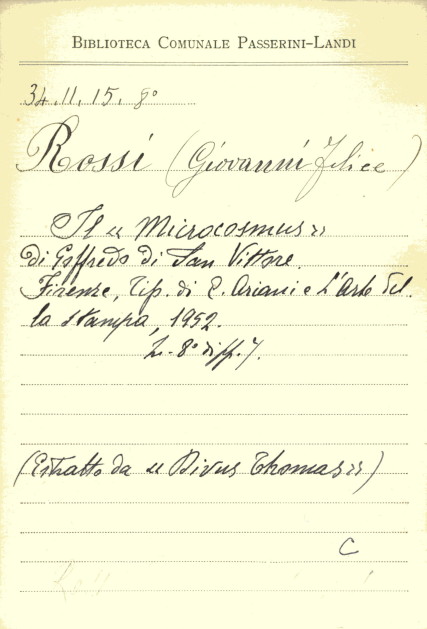 BIBLIOTECA COMUNALE PASSERINI-LANDI
34.11.15.8°
Rossi (Giovanni Felice)
Il « Microcosmus »
di Goffredo di San Vittore.
Firenze, Tip. di E. Ariani e L'Arte del
la stampa, 1952.
8° diff. 7.
(Estratto da « Divus Thomas »)
C